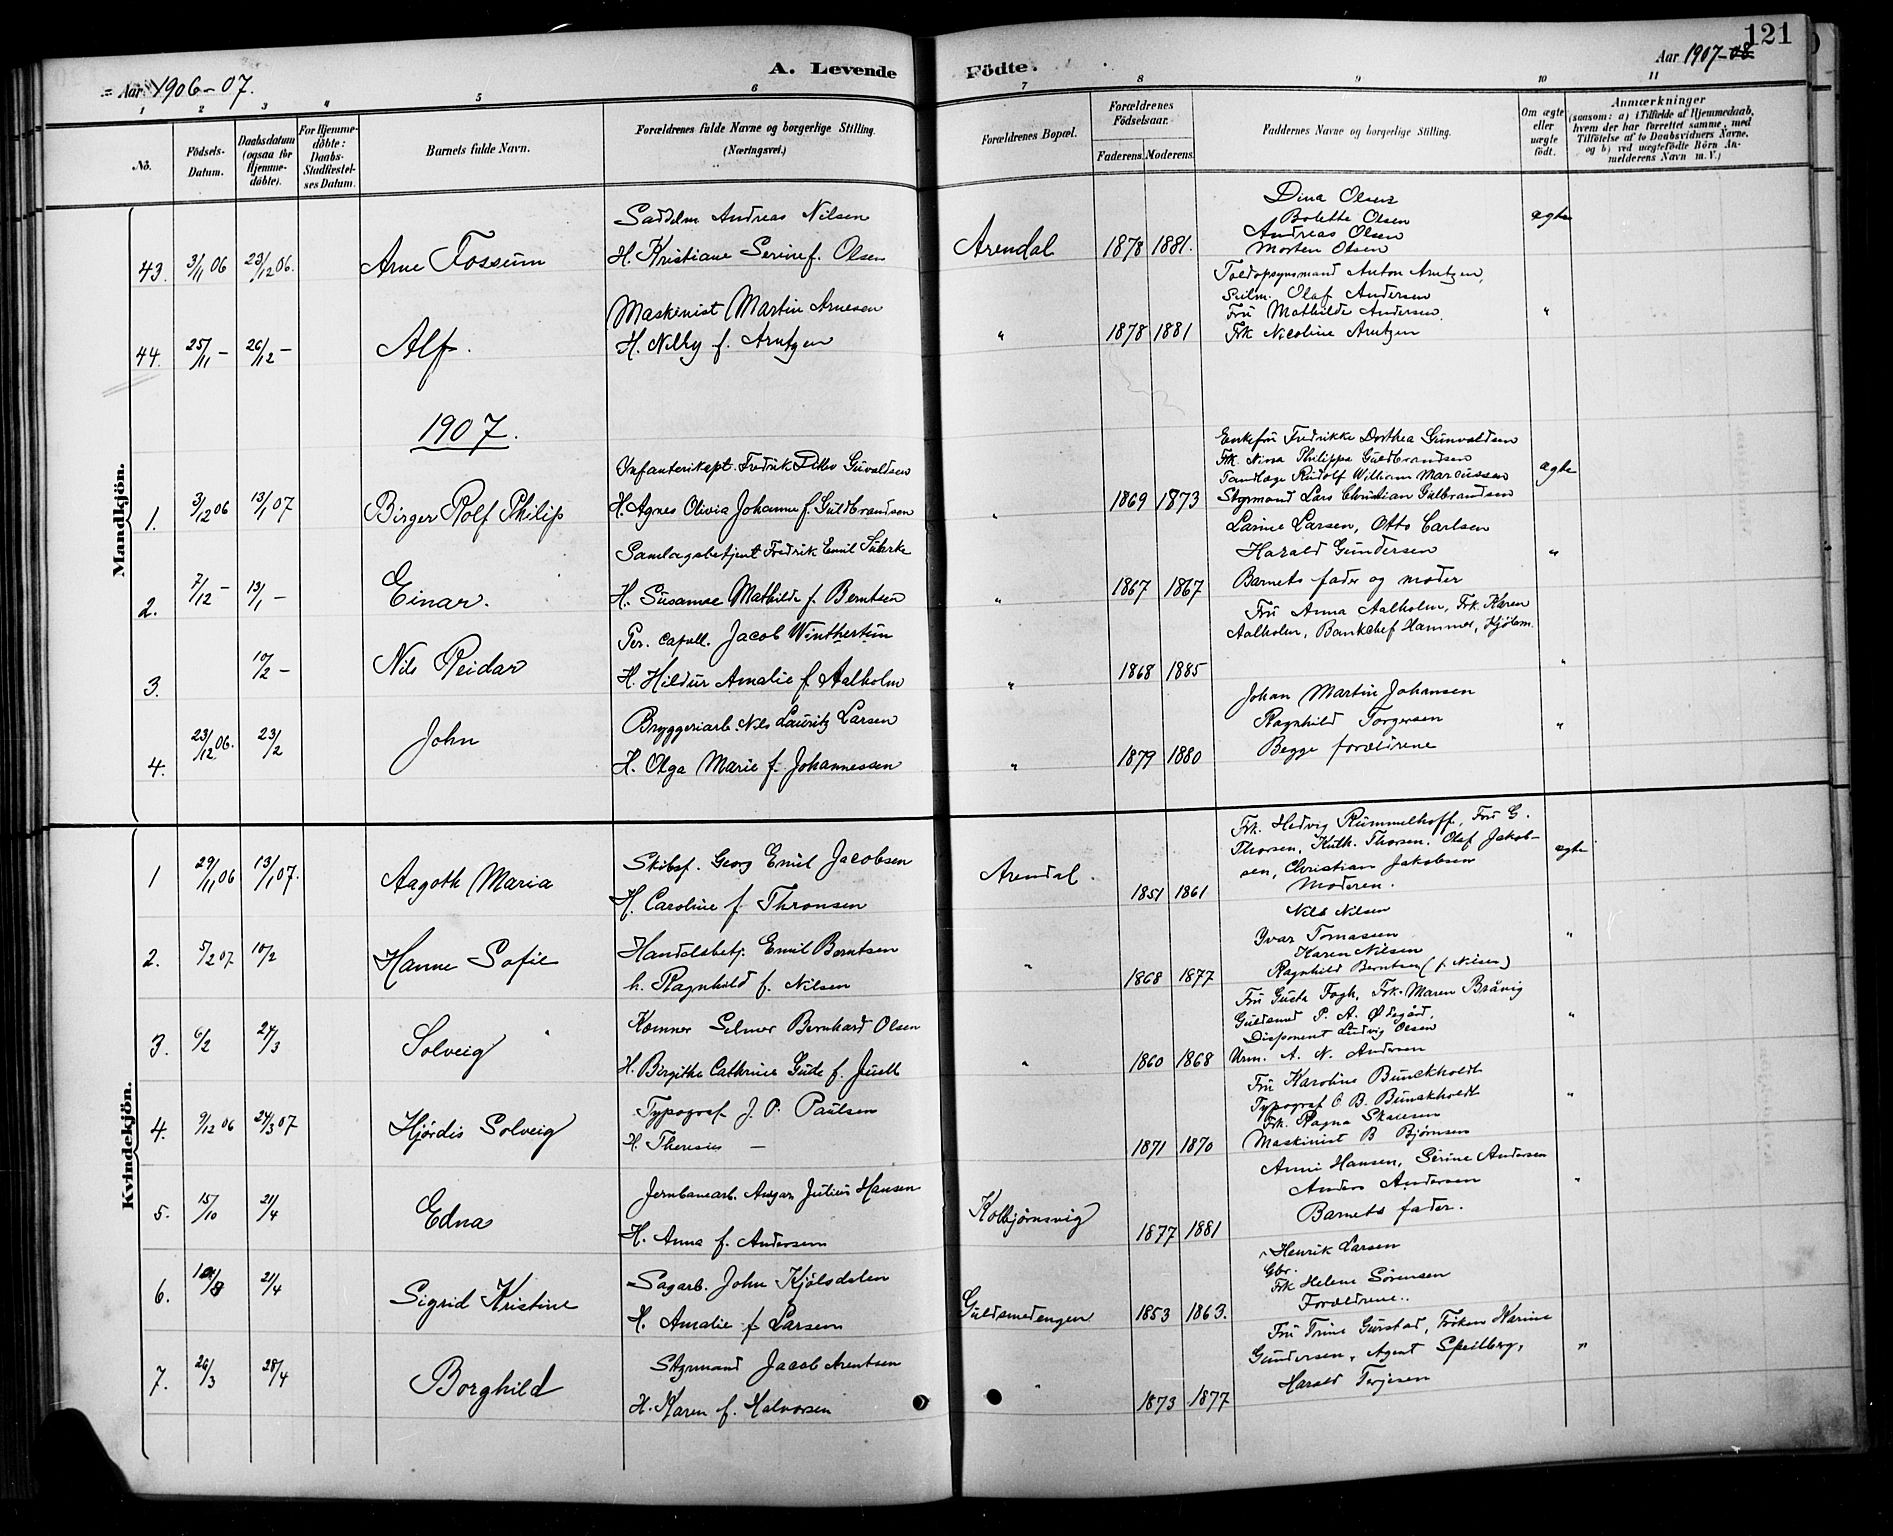 121
Aar 1906-07.
A. Levende Födte.
Aar 1907-08
1 2 3 4 5 6 7 8 9 10 11
Nô.
Födsels-Datum.
Daabsdatum (ogsaa for Hjemme-döbte).
For Hjemme-döbte: Daabs-Stadfæstel-ses Datum.
Barnets fulde Navn.
Forældrenes fulde Navne og borgerlige Stilling. (Næringsvei.)
Forældrenes Bopæl.
Forældrenes Födselsaar.
Faderens. Moderens.
Faddernes Navne og borgerlige Stilling.
Om ægte eller uægte födt.
Anmærkninger
(saasom: a) i Tilfælde af Hjemmedaab, hvem der har forrettet samme, med Tilföielse af to Daabsvidners Navne, og b) ved uægtefödte Börn An-melderens Navn m. V.)
Mandkjön.
43. 3/11 06 23/12 06. Arne Fossum
Saddelm Andreas Nilsen
H. Kristiane Serine f. Olsen
Arendal 1878 1881.
Dina Olsen
Bolette Olsen
Andreas Olsen
Morten Olsen
ægte
44. 25/11 - 26/12 - Alf.
Maskinist Martin Arnesen
H. Nelly f. Arntzen
" 1878 1881
Toldopsynsmand Anton Arntzen,
Seilm. Olaf Andersen
Fru Mathilde Andersen
Frk Nicoline Arntzen
"
1907.
1. 3/12 06 13/1 07 Birger Rolf Philip
Infanterikapt. Fredrik Ditlev Guvaldsen
H. Agnes Olivia Johanne f. Guldbrandsen
" 1869 1873
Enkefru Fredrikke Dorthea Gunvaldsen
Frk. Nina Philippa Guldbrandsen
Tandlæge Rudolf William Marcussen
Styrmand Lars Christian Gulbrandsen
ægte
2. 7/12 - 13/1 - Einar.
Samlagsbetjent Fredrik Emil Suhrke
H. Susanne Mathilde f. Berntsen
" 1867 1867
Larine Larsen, Otto Carlsen
Harald Gundersen
Barnets fader og moder
"
3. 10/2 - Nils Reidar
Per. Capell. Jacob Winthertun
H. Hildur Amalie f. Aalholm
" 1868 1885
Fru Anna Aalholm, Frk. Karen
Aalholm, Bankchef Hammer, Kjöbm.
"
4. 23/12 06. 23/2 John
Bryggeriarb. Nils Lauritz Larsen
H. Olga Marie f. Johannessen
" 1879 1880
Johan Martin Johansen
Ragnhild Torgersen
Begge forældrene
"
Kvindekjön.
1 29/11 06 13/1 07. Aagoth Maria
Skibsf. Georg Emil Jacobsen
H. Caroline f Thronsen
Arendal. 1851 1861
Frk. Hedvig Rummelhoff, Fru G.
Thorsen, Kath. Thorsen. Olaf Jakob-
sen, Christian Jakobsen
Moderen.
ægte
2. 5/2 07 10/2 Hanne Sofie
Handelsbetj. Emil Berntsen
h. Ragnhild f. Nilsen
" 1868 1877
Nils Nilsen
Yvar Tomassen
Karen Nilsen
Ragnhild Berntsen (f. Nilsen)
"
3. 6/2 24/3 Solveig
Kæmner Selmer Bernhard Olsen
H. Birgithe Cathrine Gude f. Juell
" 1860 1868
Fru Gusta Fogh, Frk. Maren Bråvig
Guldsmed P. A. Ødegård,
Disponent Ludvig Olsen
Urm. A. N. Andersen
"
4. 9/12 06 24/3 07 Hjördis Solveig
Typograf J. P. Paulsen
H. Theresie -
1871 1870
Fru Karoline Bunckholdt
Typograf C. B. Bunckholdt
Frk. Ragna Skauen
Maskinist B Bjørnsen
"
5. 15/10 21/4 Edna
Jernbanearb. Ansgar Julius Hansen
H. Anna f. Andersen
Kolbjørnsvig 1877 1881
Anni Hansen, Serine Andersen
Anders Andersen
Barnets fader.
"
6. 21/4 Sigrid Kristine
Sagarb. John Kjölsdalen
H. Amalie f Larsen
Guldsmedengen 1853 1863.
Henrik Larsen
Gbr.
Frk Helene Sørensen
Forældrene..
7. 26/3 28/4 Borghild
Styrmand Jacob Arentsen
H. Karen f. Halvorsen
" 1873 1877
Fru Trine Gurstad, Frøken Karine
Gundersen, Agent Speilberg,
Harald Terjesen
"